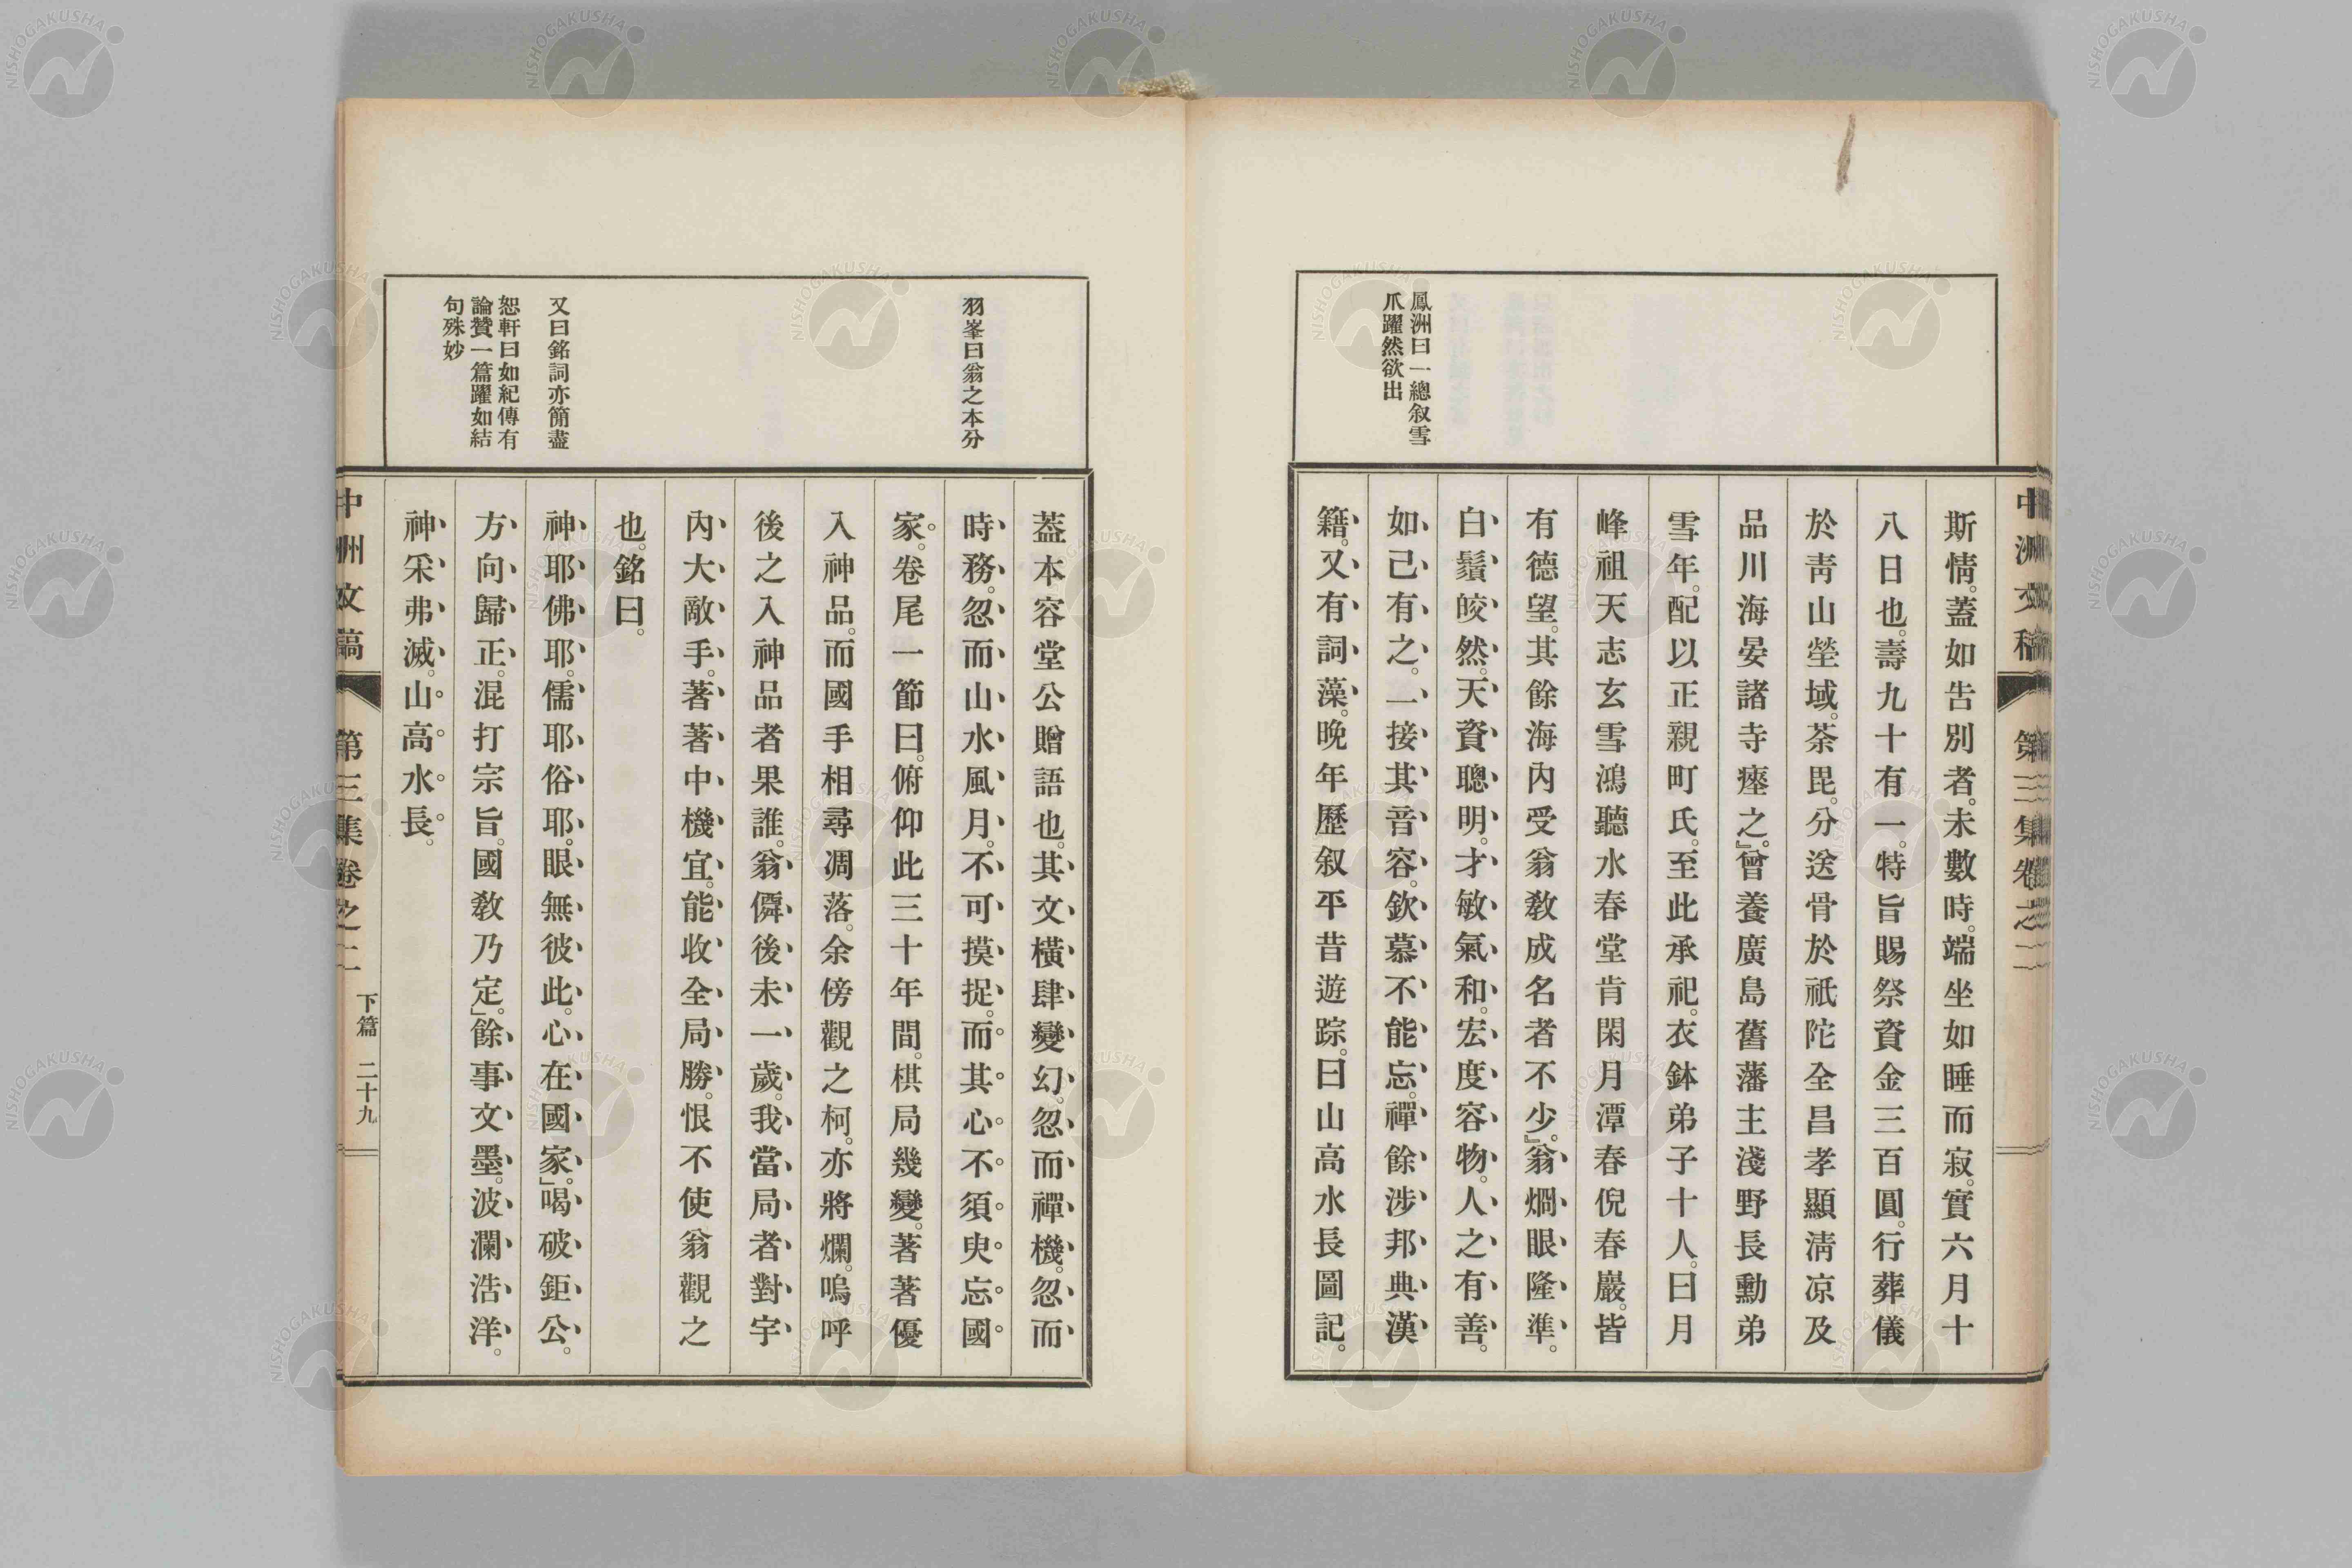 鳳洲曰一總叙雪
爪躍然欲出
中洲文稿 第三集卷之二
斯情。蓋如吿別者。未數時。端坐如睡而寂。實六月十
八日也。壽九十有一。特旨賜祭資金三百圓。行葬儀
於靑山塋域。荼毘。分送骨於祇陀全昌孝顯淸凉及
品川海晏諸寺瘞之。」曾養廣島舊藩主淺野長勳弟
雪年。配以正親町氏。至此承祀。衣鉢弟子十人。曰月
峰祖天志玄雪鴻聽水春堂肯閑月潭春倪春巖。皆
有德望。其餘海內受翁敎成名者不少。」翁、烱眼、隆準。
白鬚皎然。天資聰明。才敏氣和。宏度容物。人之有善。
如己有之。一接其音容。欽慕不能忘。禪餘涉邦典漢
籍。又有詞藻。晚年歷叙平昔遊踪。曰山高水長圖記。
羽峯曰翁之本分
又曰銘詞亦簡盡
恕軒曰如紀傳有
論贊一篇躍如結
句殊妙
蓋本容堂公贈語也。其文橫肆變幻。忽而禪機。忽而
時務。忽而山水風月。不可摸捉。而其心不須臾忘國
家。卷尾一節曰。俯仰此三十年間。棋局幾變。著著優
入神品。而國手相尋凋落。余傍觀之柯。亦將爛。嗚呼
後之入神品者果誰。翁僻後未一歲。我當局者對宇
內大敵手。著著中機宜。能收全局勝。恨不使翁觀之
也。銘曰。
神耶佛耶。儒耶俗耶。眼無彼此。心在國家。」喝破鉅公。
方向歸正。混打宗旨。國敎乃定。」餘事文墨。波瀾浩洋。
神采弗滅。山高水長。
中洲文稿 第三集卷之二 下篇 二十九
NISHOGAKUSHA